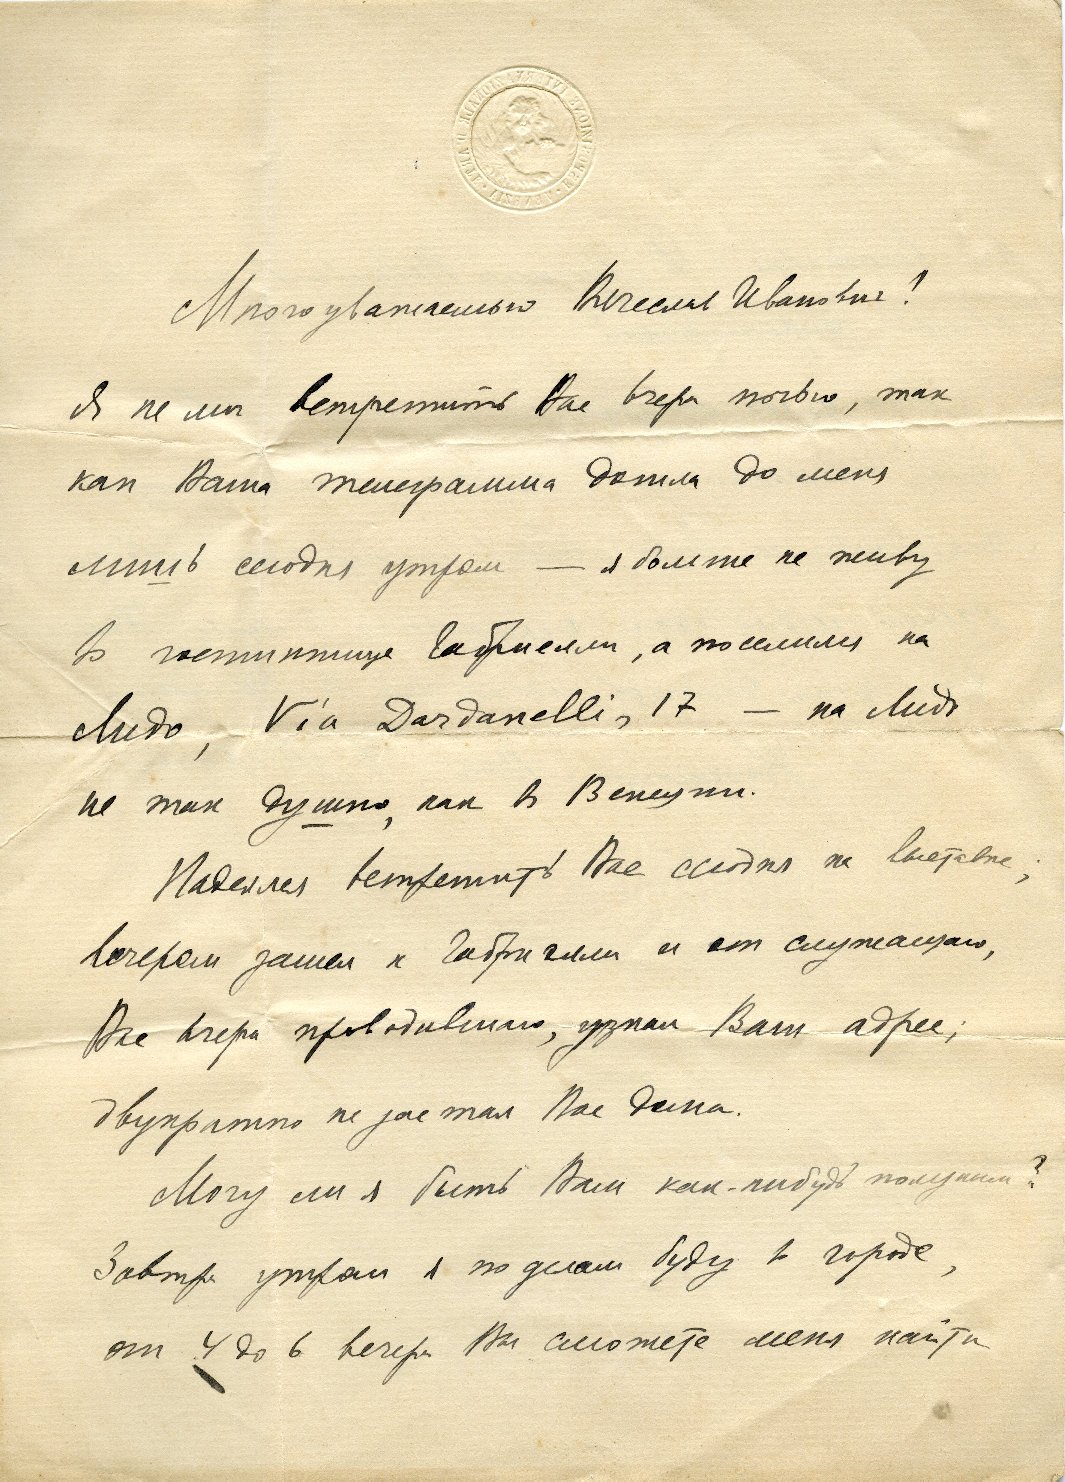 ESPOSIZIONE INTERNAZIONALE D'ARTE · VENEZIA ·
Многоуважаемый Вячеслав Иванович!
Я не мог встретить Вас вчера ночью, так
как Ваша телеграмма дошла до меня
лишь сегодня утром — я больше не живу
в гостинице Габриелли, а поселился на
Лидо, Via Dardanelli, 17 — на Лидо
не так душно, как в Венеции.
Надеялся встретить Вас сегодня на выставке;
вечером зашел к Габриелли и от служащего,
Вас вчера проводившего, узнал Ваш адрес;
двукратно не застал Вас дома.
Могу ли я быть Вам как-нибудь полезным?
Завтра утром я по делам буду в городе,
от 4 до 6 вечера Вы сможете меня найти